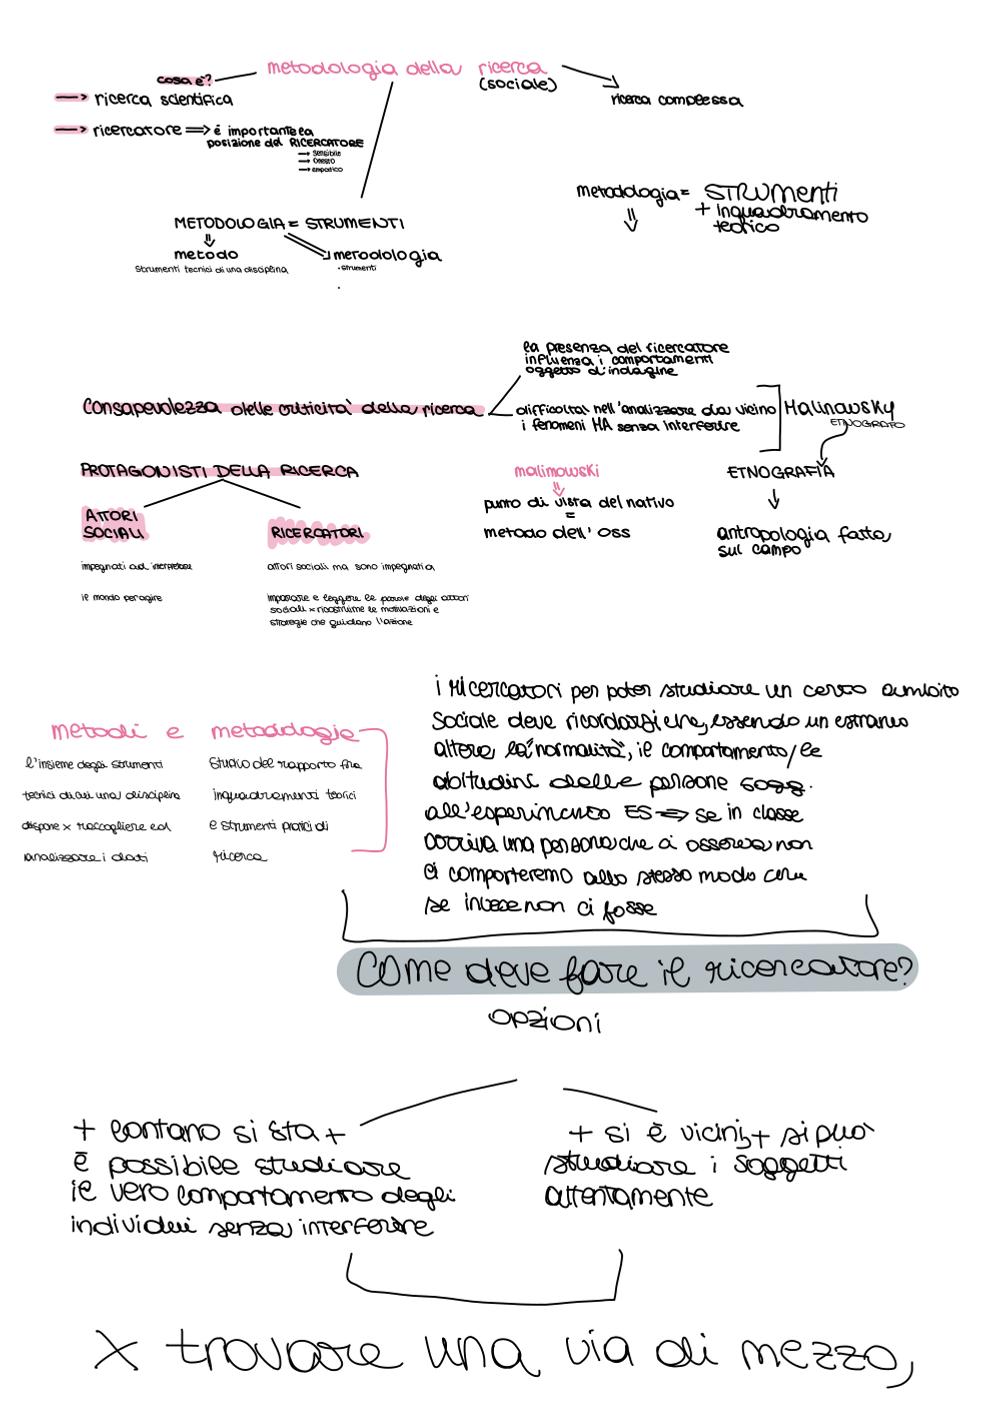 metodologia della ricerca
(sociale)
cosa è?
→ ricerca scientifica
ricerca complessa
→ ricercatore ⇒ è importante la
posizione del RICERCATORE
→ sensibile
→ onesto
→ empatico
metodologia = STRUMENTI
+ inquadramento
teorico
⇓
METODOLOGIA = STRUMENTI
metodo
strumenti tecnici di una disciplina
metodologia
· strumenti
la presenza del ricercatore
influenza i comportamenti
oggetto d'indagine
Consapevolezza delle criticità della ricerca
difficoltà nell'analizzare da vicino
i fenomeni MA senza interferire
Malinowsky
ETNOGRAFO
ETNOGRAFIA
↓
antropologia fatta
sul campo
malinowski
punto di vista del nativo
=
metodo dell'oss
PROTAGONISTI DELLA RICERCA
ATTORI
SOCIALI
impegnati ad interpretare
il mondo per agire
RICERCATORI
attori sociali ma sono impegnati a
imparare e leggere le parole degli attori
sociali x ricostruire le motivazioni e
strategie che guidano l'azione
i ricercatori per poter studiare un certo ambito
sociale deve ricordarsi che, essendo un estraneo
altera la "normalità", il comportamento/le
abitudini delle persone sogg.
all'esperimento ES ⇒ se in classe
arriva una persona che ci osserva non
ci comporteremo allo stesso modo che
se invece non ci fosse
metodi e metodologie
l'insieme degli strumenti
tecnici di cui una disciplina
dispone x raccogliere ed
analizzare i dati
studio del rapporto fra
inquadramenti teorici
e strumenti pratici di
ricerca
COME deve fare il ricercatore?
opzioni
+ lontano si sta +
è possibile studiare
il vero comportamento degli
individui senza interferire
+ si è vicini, + si può
studiare i soggetti
attentamente
x trovare una via di mezzo,